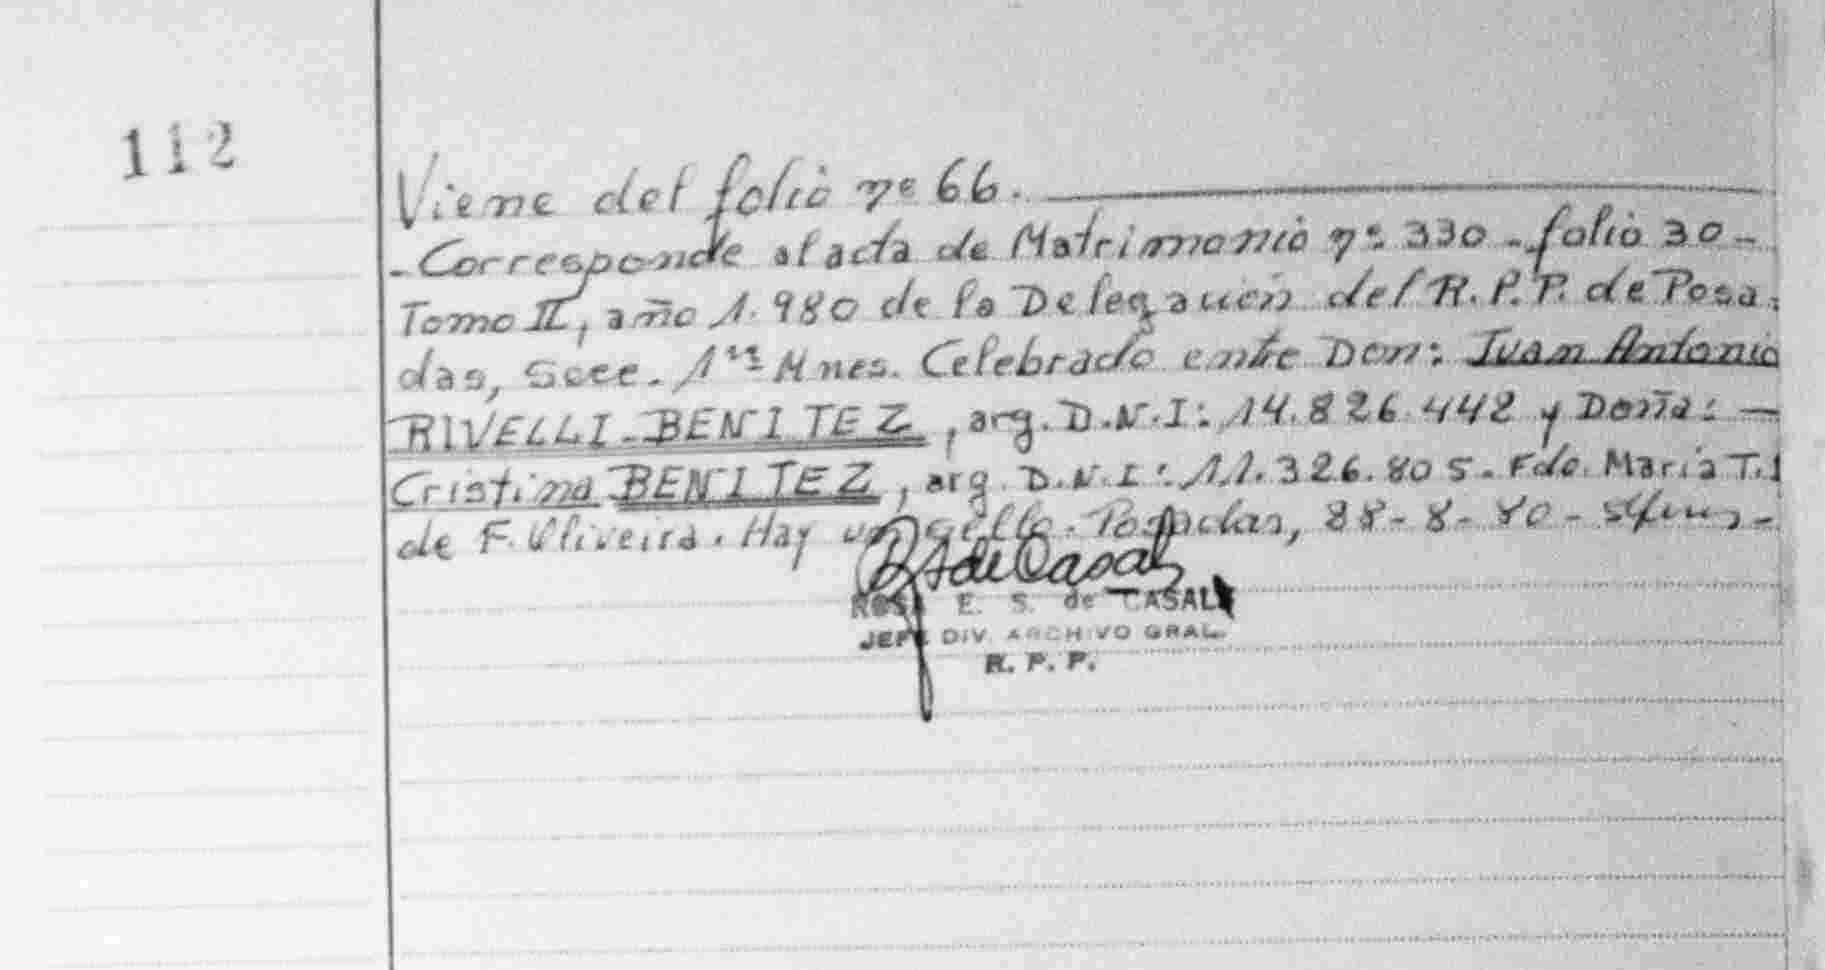 112
Viene del folio nº 66.
- Corresponde al acta de Matrimonio nº 330 - folio 30 -
Tomo II, año 1.980 de la Delegación del R.P.P. de Posa-
das, Secc. 1ra Mnes. Celebrado entre Don: Juan Antonio
RIVELLI-BENITEZ, arg. D.N.I: 14.826.442 y Doña: —
Cristina BENITEZ, arg. D.N.I: 11.326.805 - Fdo. María T.
de F. Oliveira. Hay un sello. Posadas, 28-8-80 -
de Casal
ROSA E. S. de CASALS
JEFE DIV. ARCHIVO GRAL.
R. P. P.